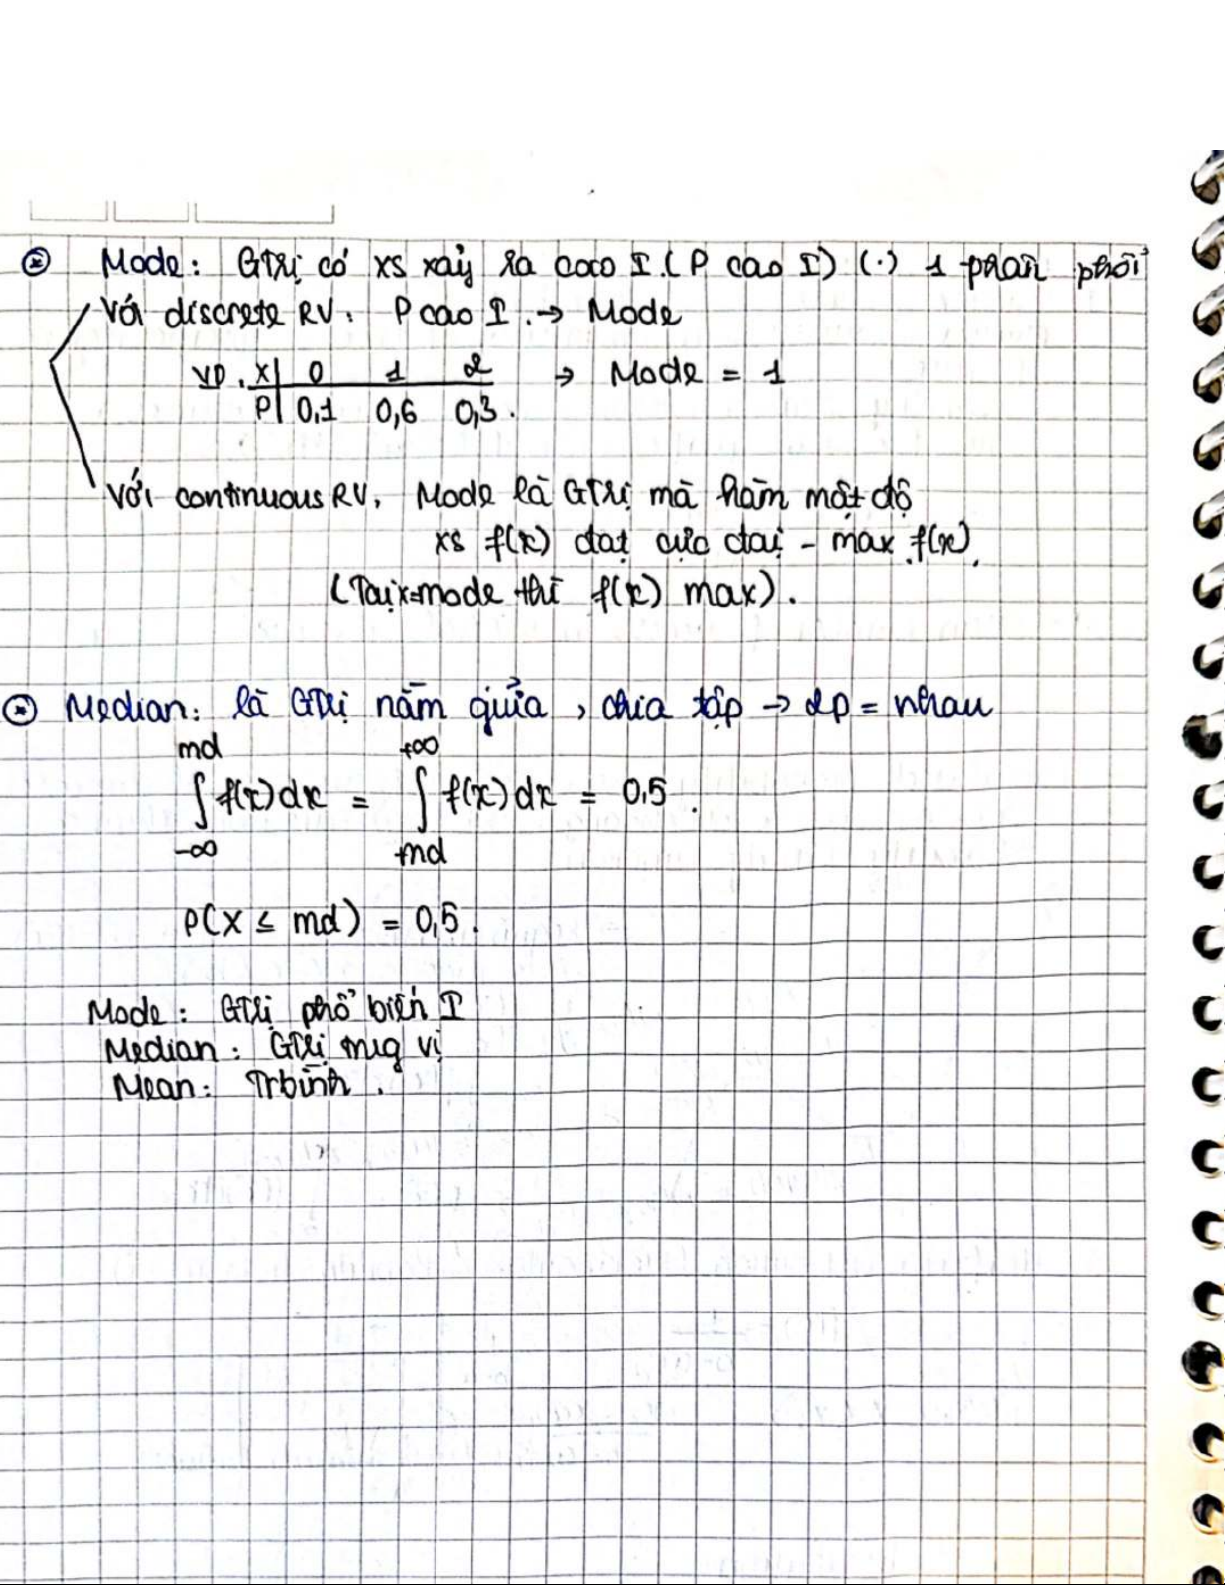 ⊛ Mode: GTRị có xs xảy ra cao I (P cao I) (·) 1 phân phối
Với discrete RV: P cao I → Mode
VD: X | 0 1 2 → Mode = 1
P | 0,1 0,6 0,3.
Với continuous RV, Mode là GTRị mà hàm mật độ
xs f(x) đạt cực đại - max f(x).
(Tại x=mode thì f(x) max).
⊛ Median: là GTRị nằm giữa, chia tập → 2p = nhau
md +∞
∫ f(x)dx = ∫ f(x)dx = 0,5.
-∞ +md
P(X ≤ md) = 0,5.
Mode: GTRị phổ biến I
Median: GTRị vị
Mean: Trbình.